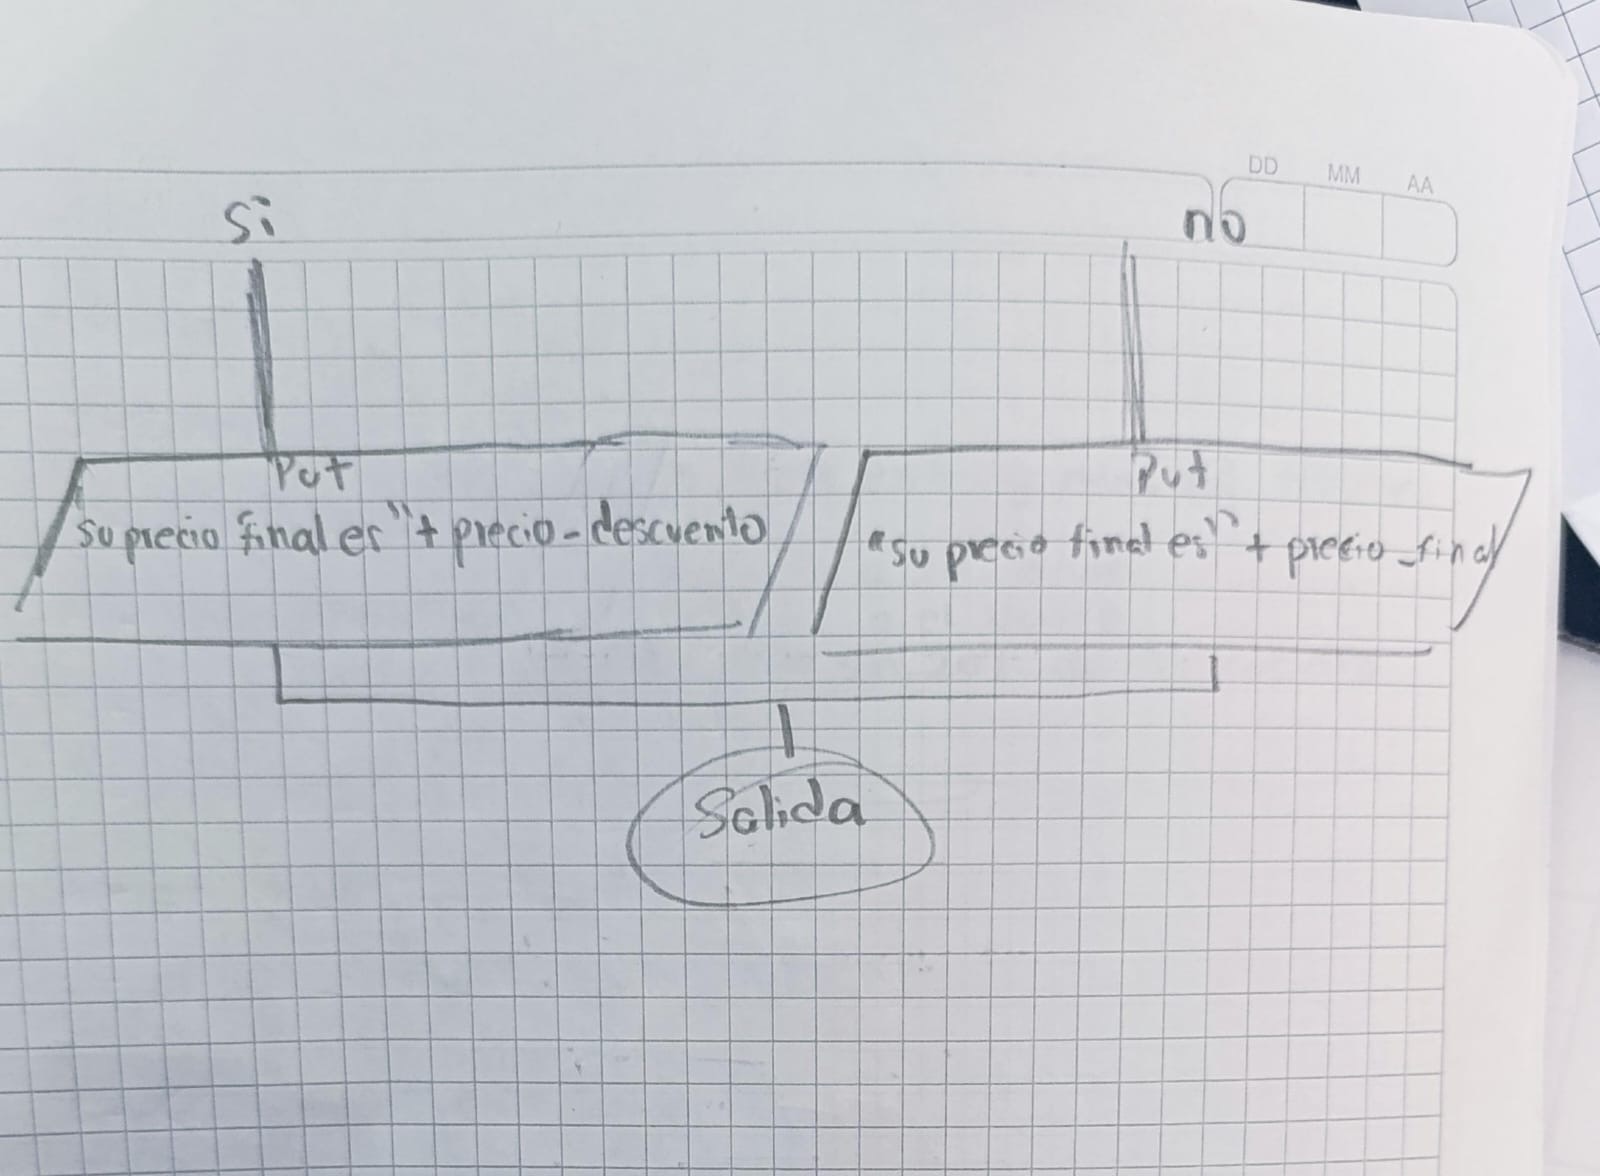 DD MM AA
Si
no
Put
su precio final es" + precio-descuento
Put
"su precio final es" + precio_final
Salida